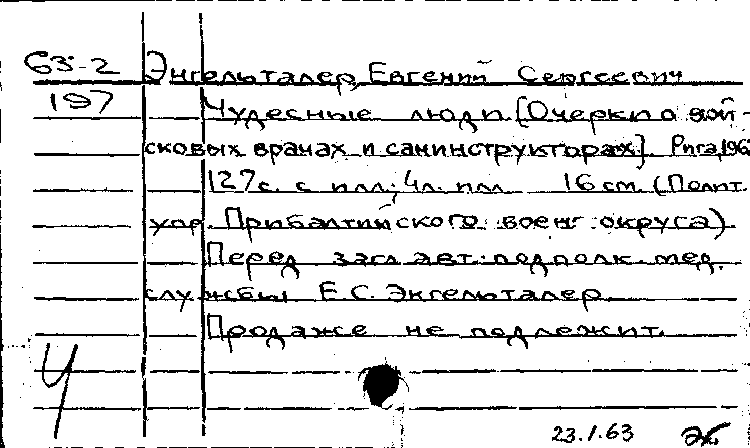 63-2 Энгельталер, Евгений Сергеевич
197 Чудесные люди [Очерки о вой-
сковых врачах и санинструкторах]. Рига, 196
127 с. с илл.; 4 л. илл. 16 см. (Полит.
упр. Прибалтийского воен. округа)
Перед загл. авт.: подполк. мед.
службы Е.С. Энгельталер.
Продаже не подлежит.
Ч
23.1.63